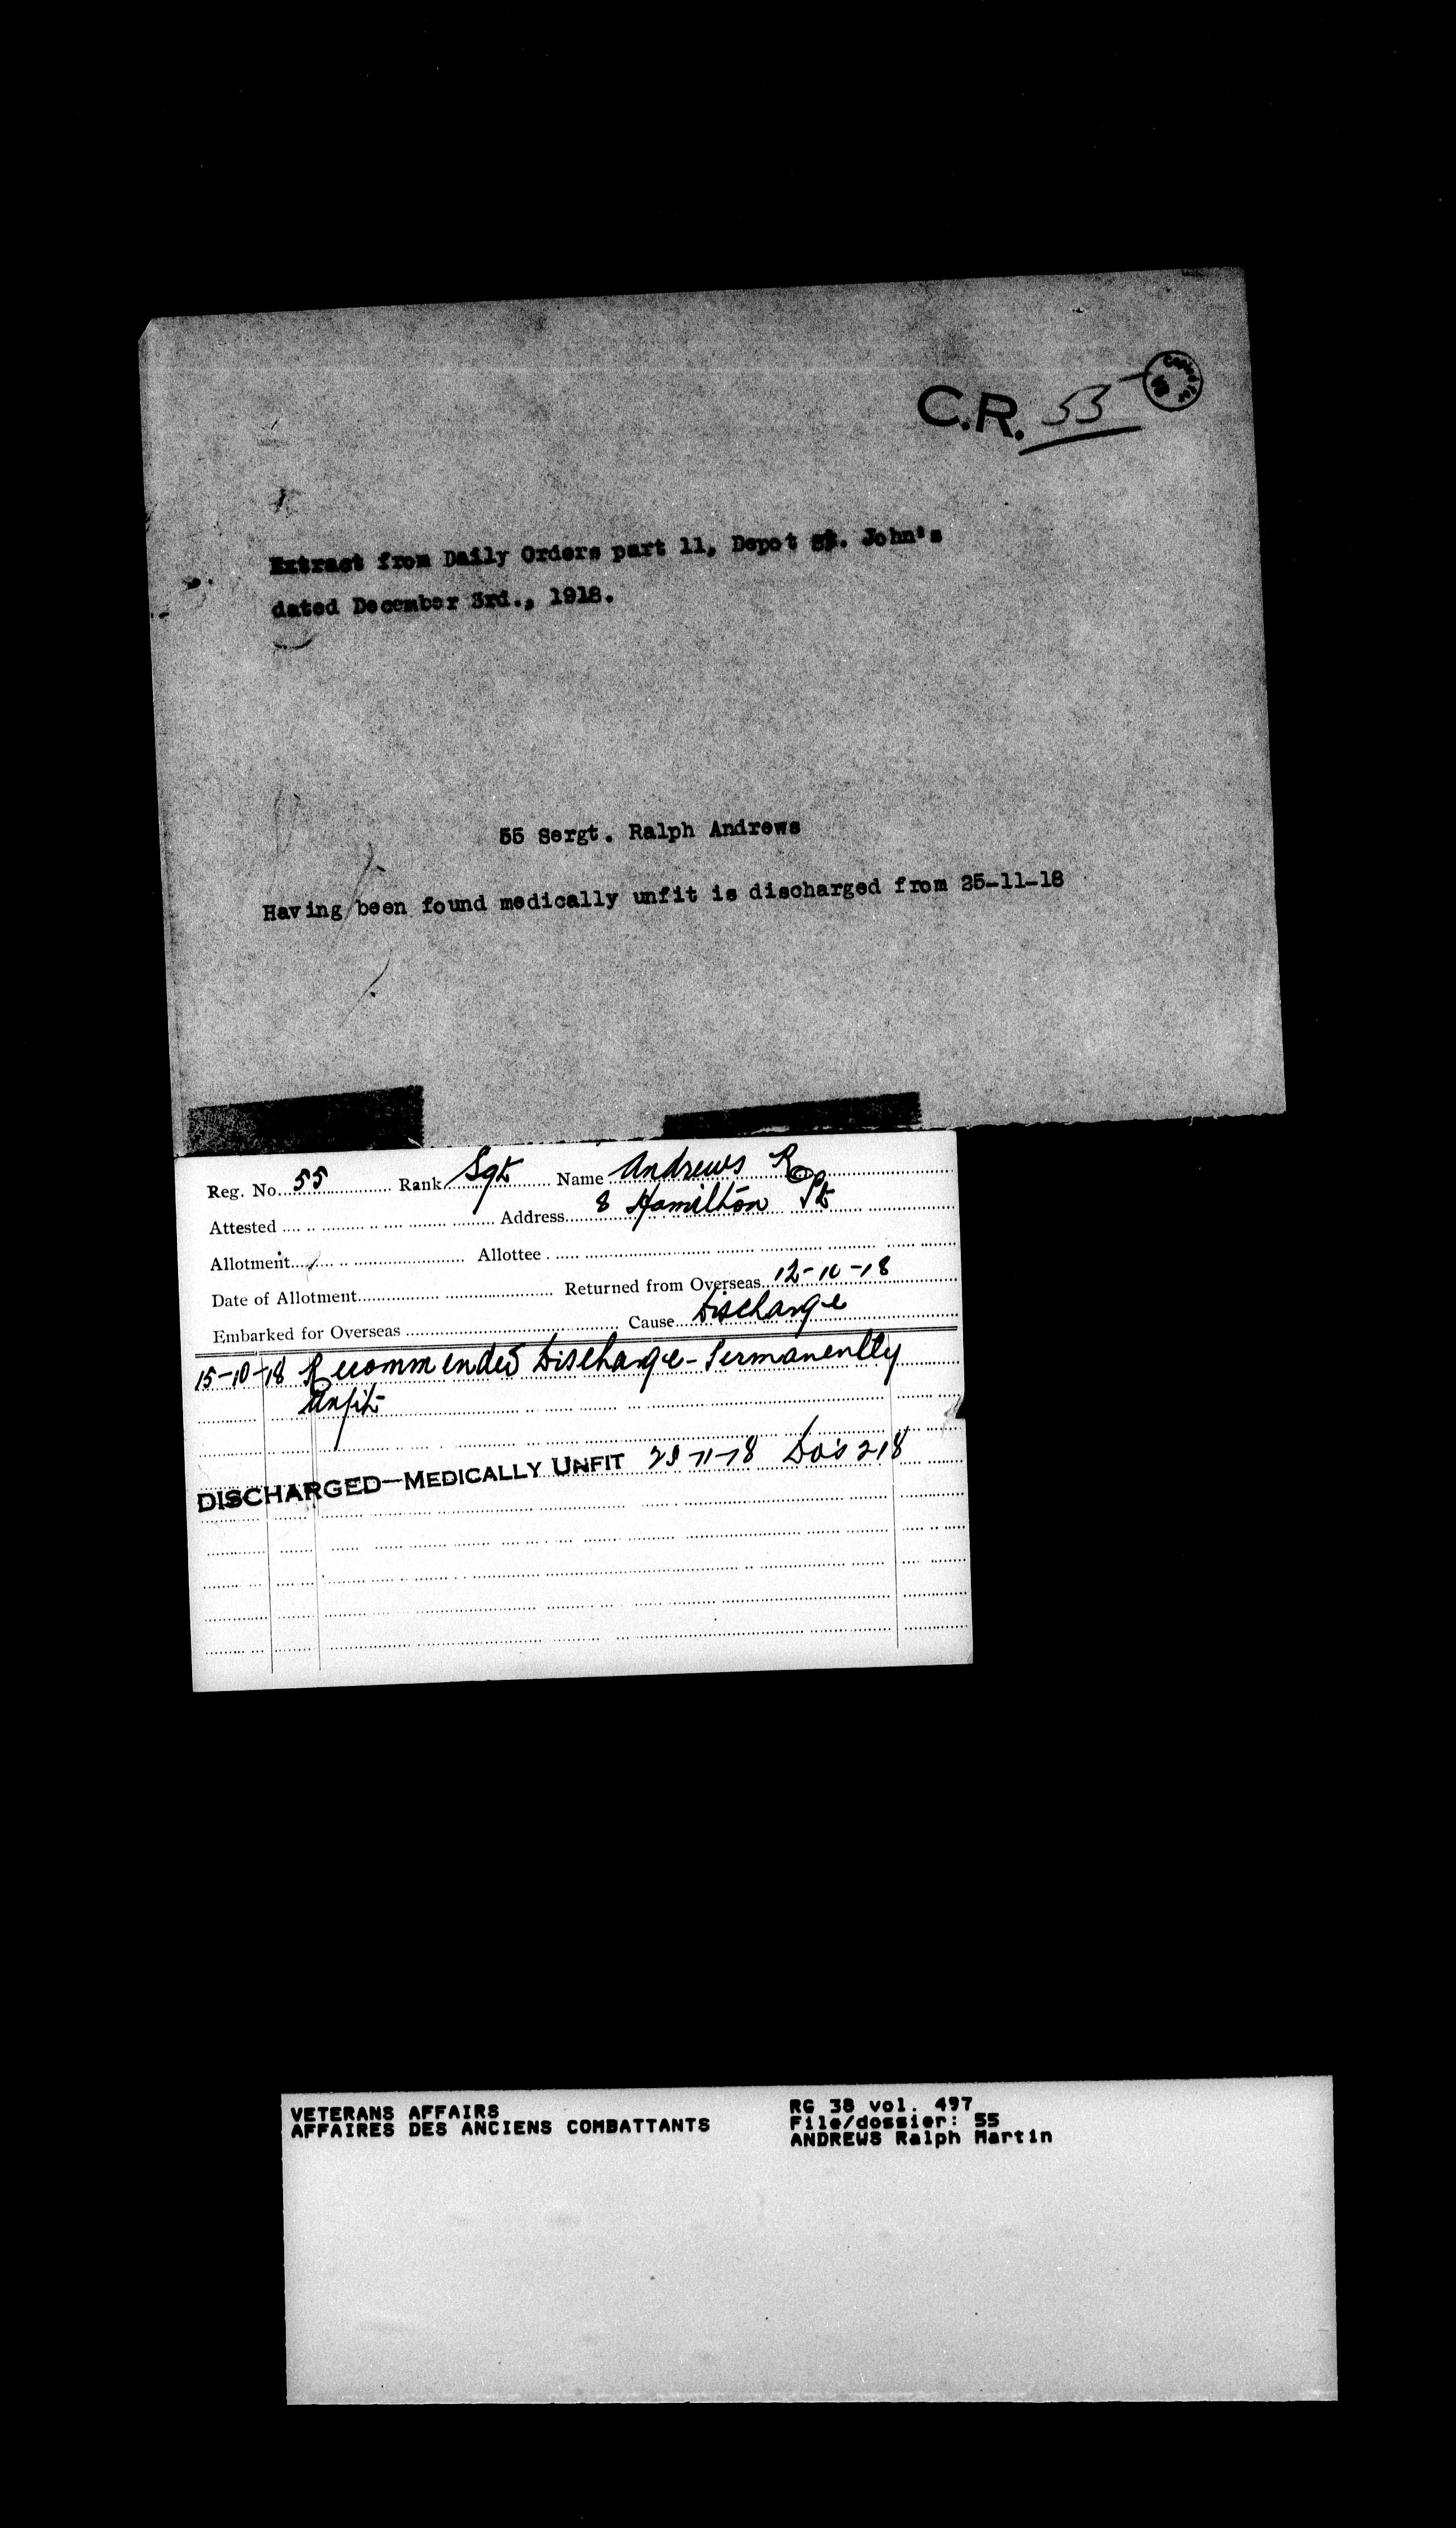 C.R. 53
Copied for
Extract from Daily Orders part 11, Depot St. John's
dated December 3rd., 1918.
55 Sergt. Ralph Andrews
Having been found medically unfit is discharged from 25-11-18
Reg. No. 55 Rank Sgt Name Andrews R
Attested Address 8 Hamilton St
Allotment Allottee
Date of Allotment Returned from Overseas 12-10-18
Embarked for Overseas Cause Discharge
15-10-18 Recommended Discharge - Permanently
Unfit
DISCHARGED—MEDICALLY UNFIT 25-11-18 Do's 218
VETERANS AFFAIRS
AFFAIRES DES ANCIENS COMBATTANTS
RG 38 vol. 497
File/dossier: 55
ANDREWS Ralph Martin